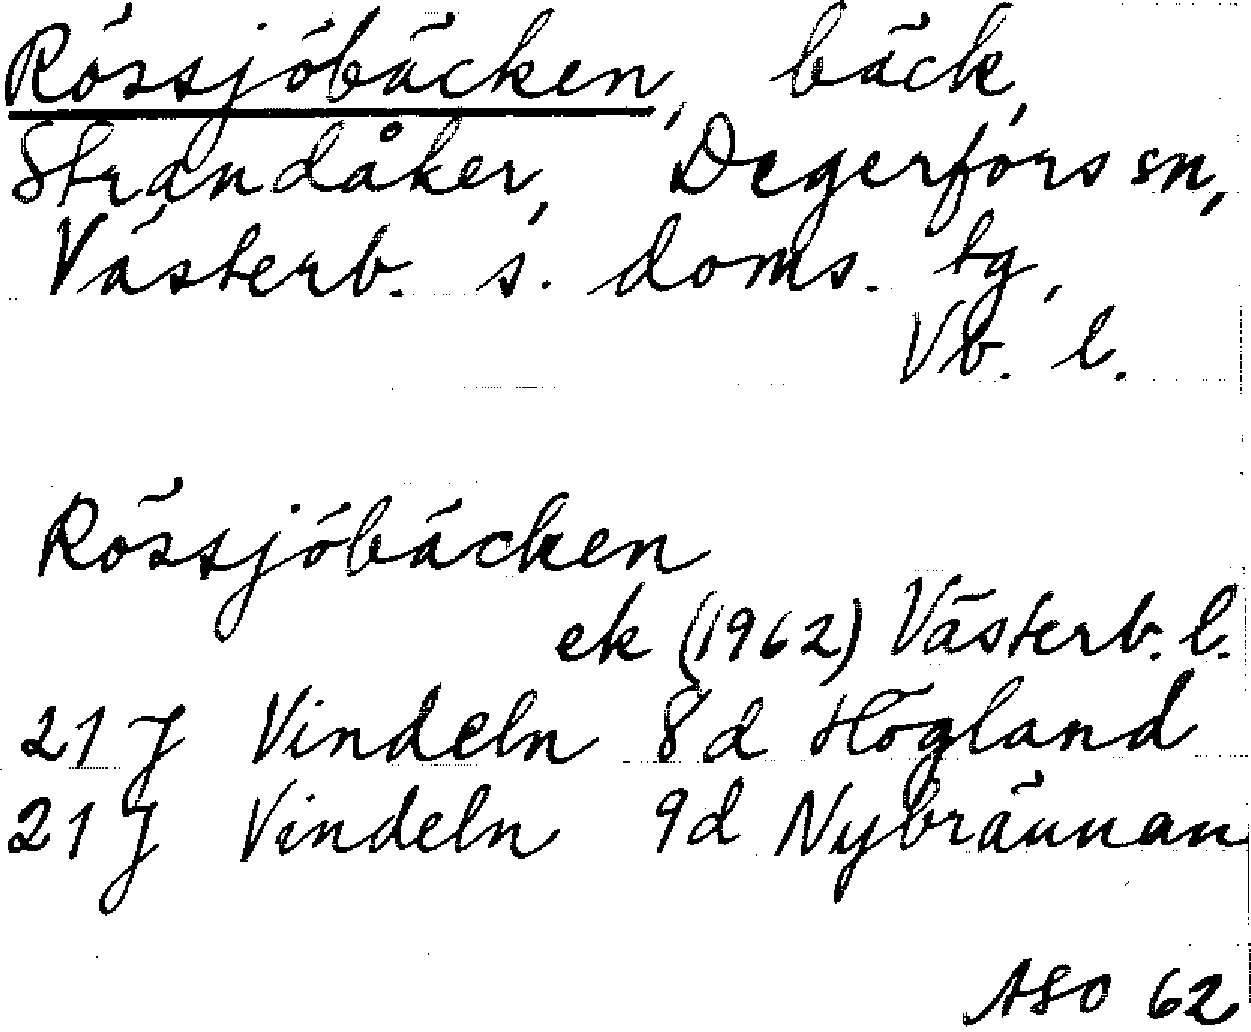 Rössjöbäcken, bäck,
Strandåker, Degerfors sn,
Västerb. s. doms. tg,
Vb. l.
Rössjöbäcken
ek (1962) Västerb. l.
21 J Vindeln 8d Högland
21 J Vindeln 9d Nybrännan
ASO 62